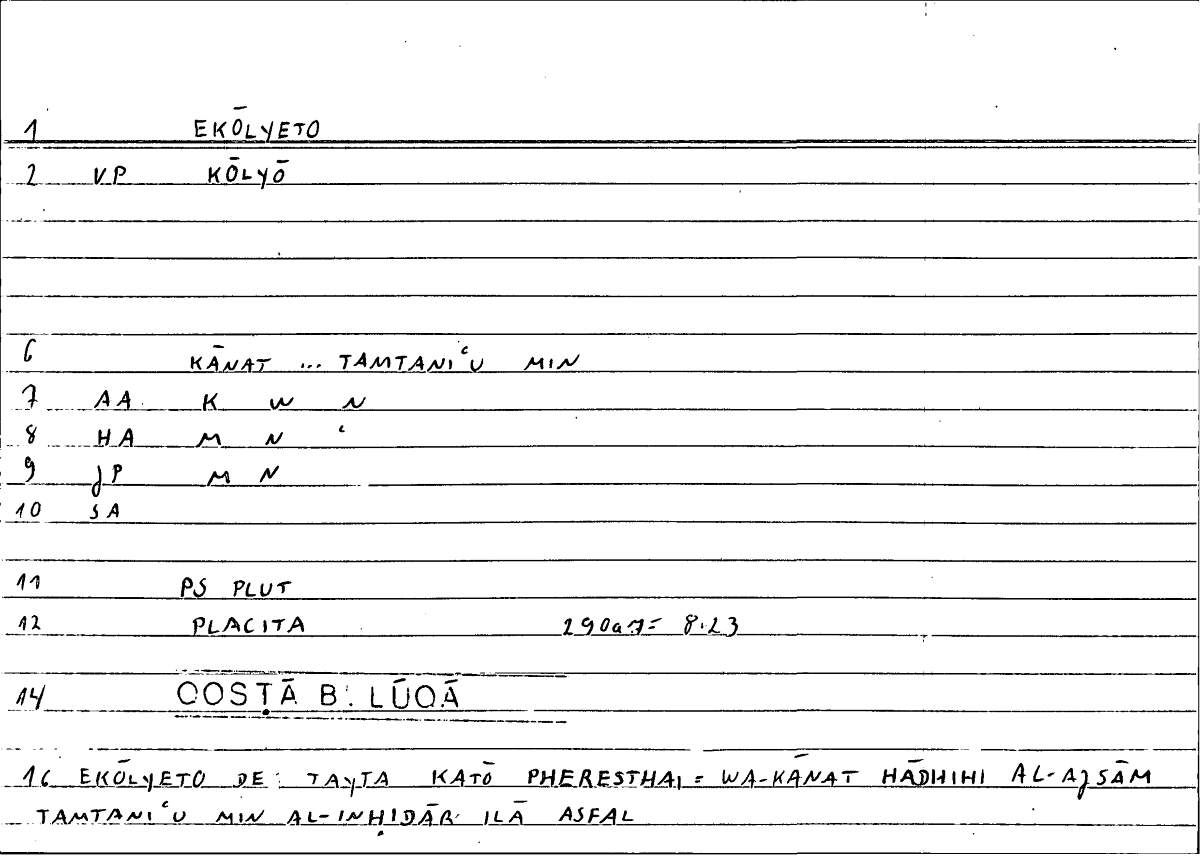 1 EKŌLYETO
2 VP KŌLYŌ
6 KĀNAT ... TAMTANIʿU MIN
7 AA K W N
8 HA M N ʿ
9 JP M N
10 SA
11 PS PLUT
12 PLACITA 290a7= 8.23
14 QOSṬĀ B. LŪQĀ
16 EKŌLYETO DE TAYTA KATŌ PHERESTHAI = WA-KĀNAT HĀDHIHI AL-AJSĀM
TAMTANIʿU MIN AL-INḤIDĀR ILĀ ASFAL